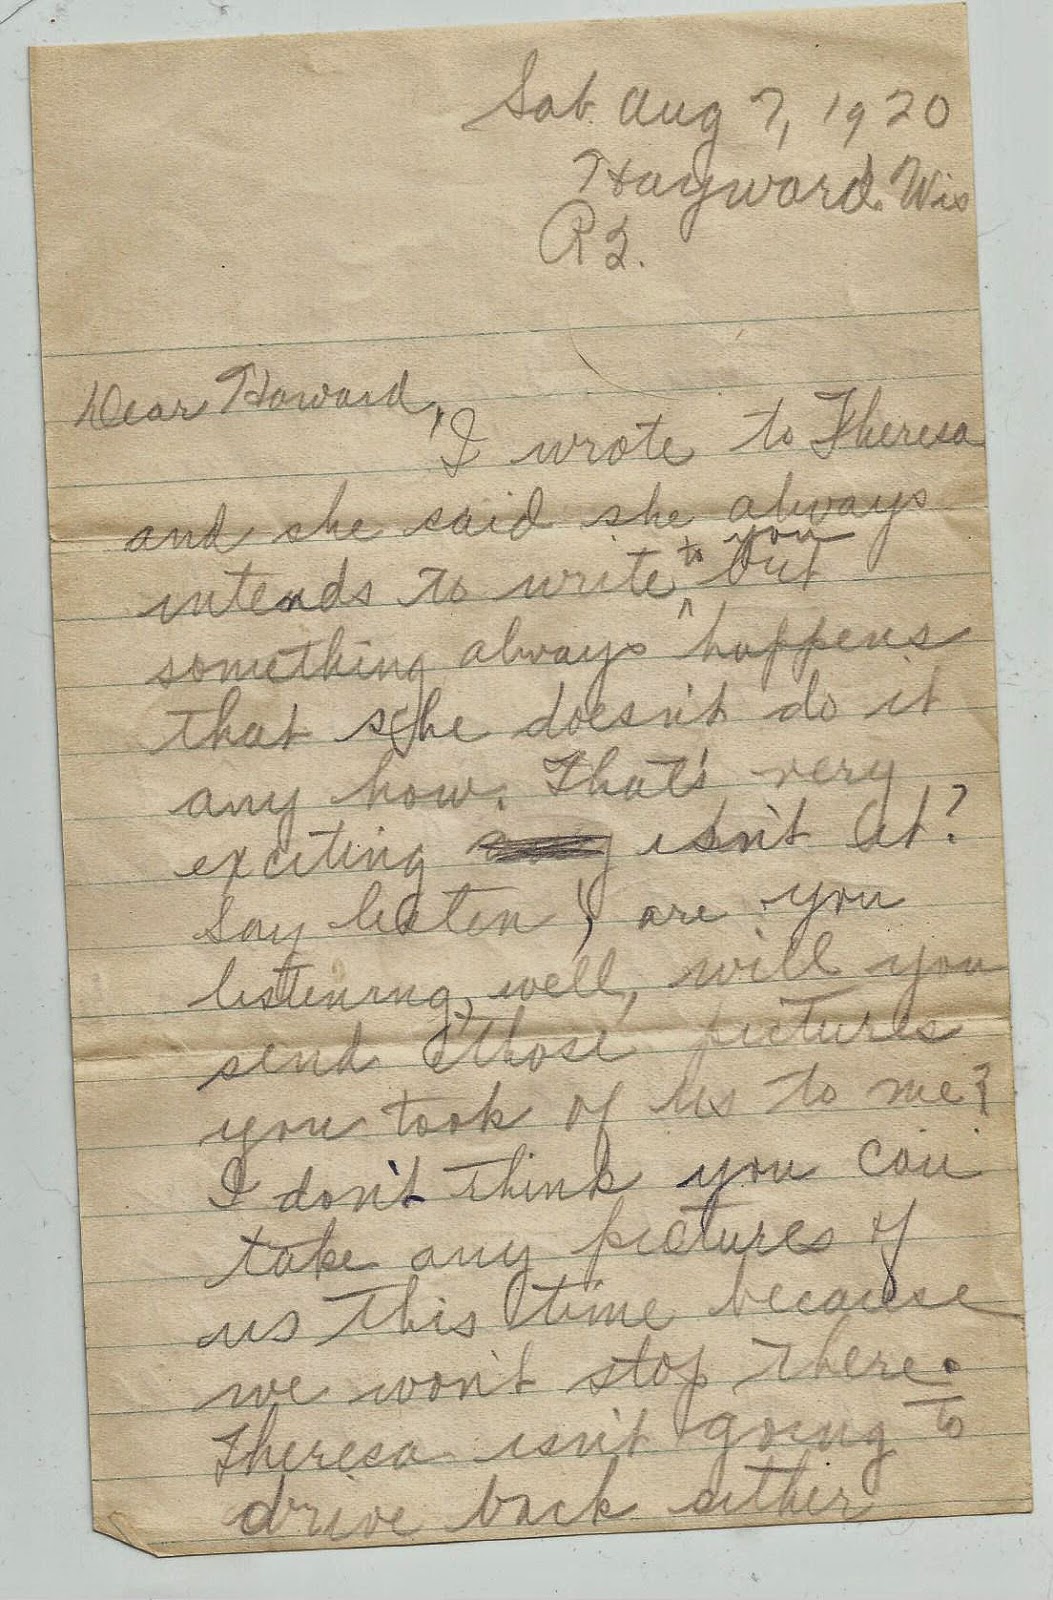 Sat. Aug 7, 1920
Hayward. Wis
R2.
Dear Howard,
I wrote to Theresa
and she said she always
intends to write to you but
something always happens
that she doesn't do it
any how. That's very
exciting isn't it?
Say listen, are you
listening, well, will you
send those pictures
you took of us to me?
I don't think you can
take any pictures of
us this time because
we won't stop there.
Theresa isn't going to
drive back either